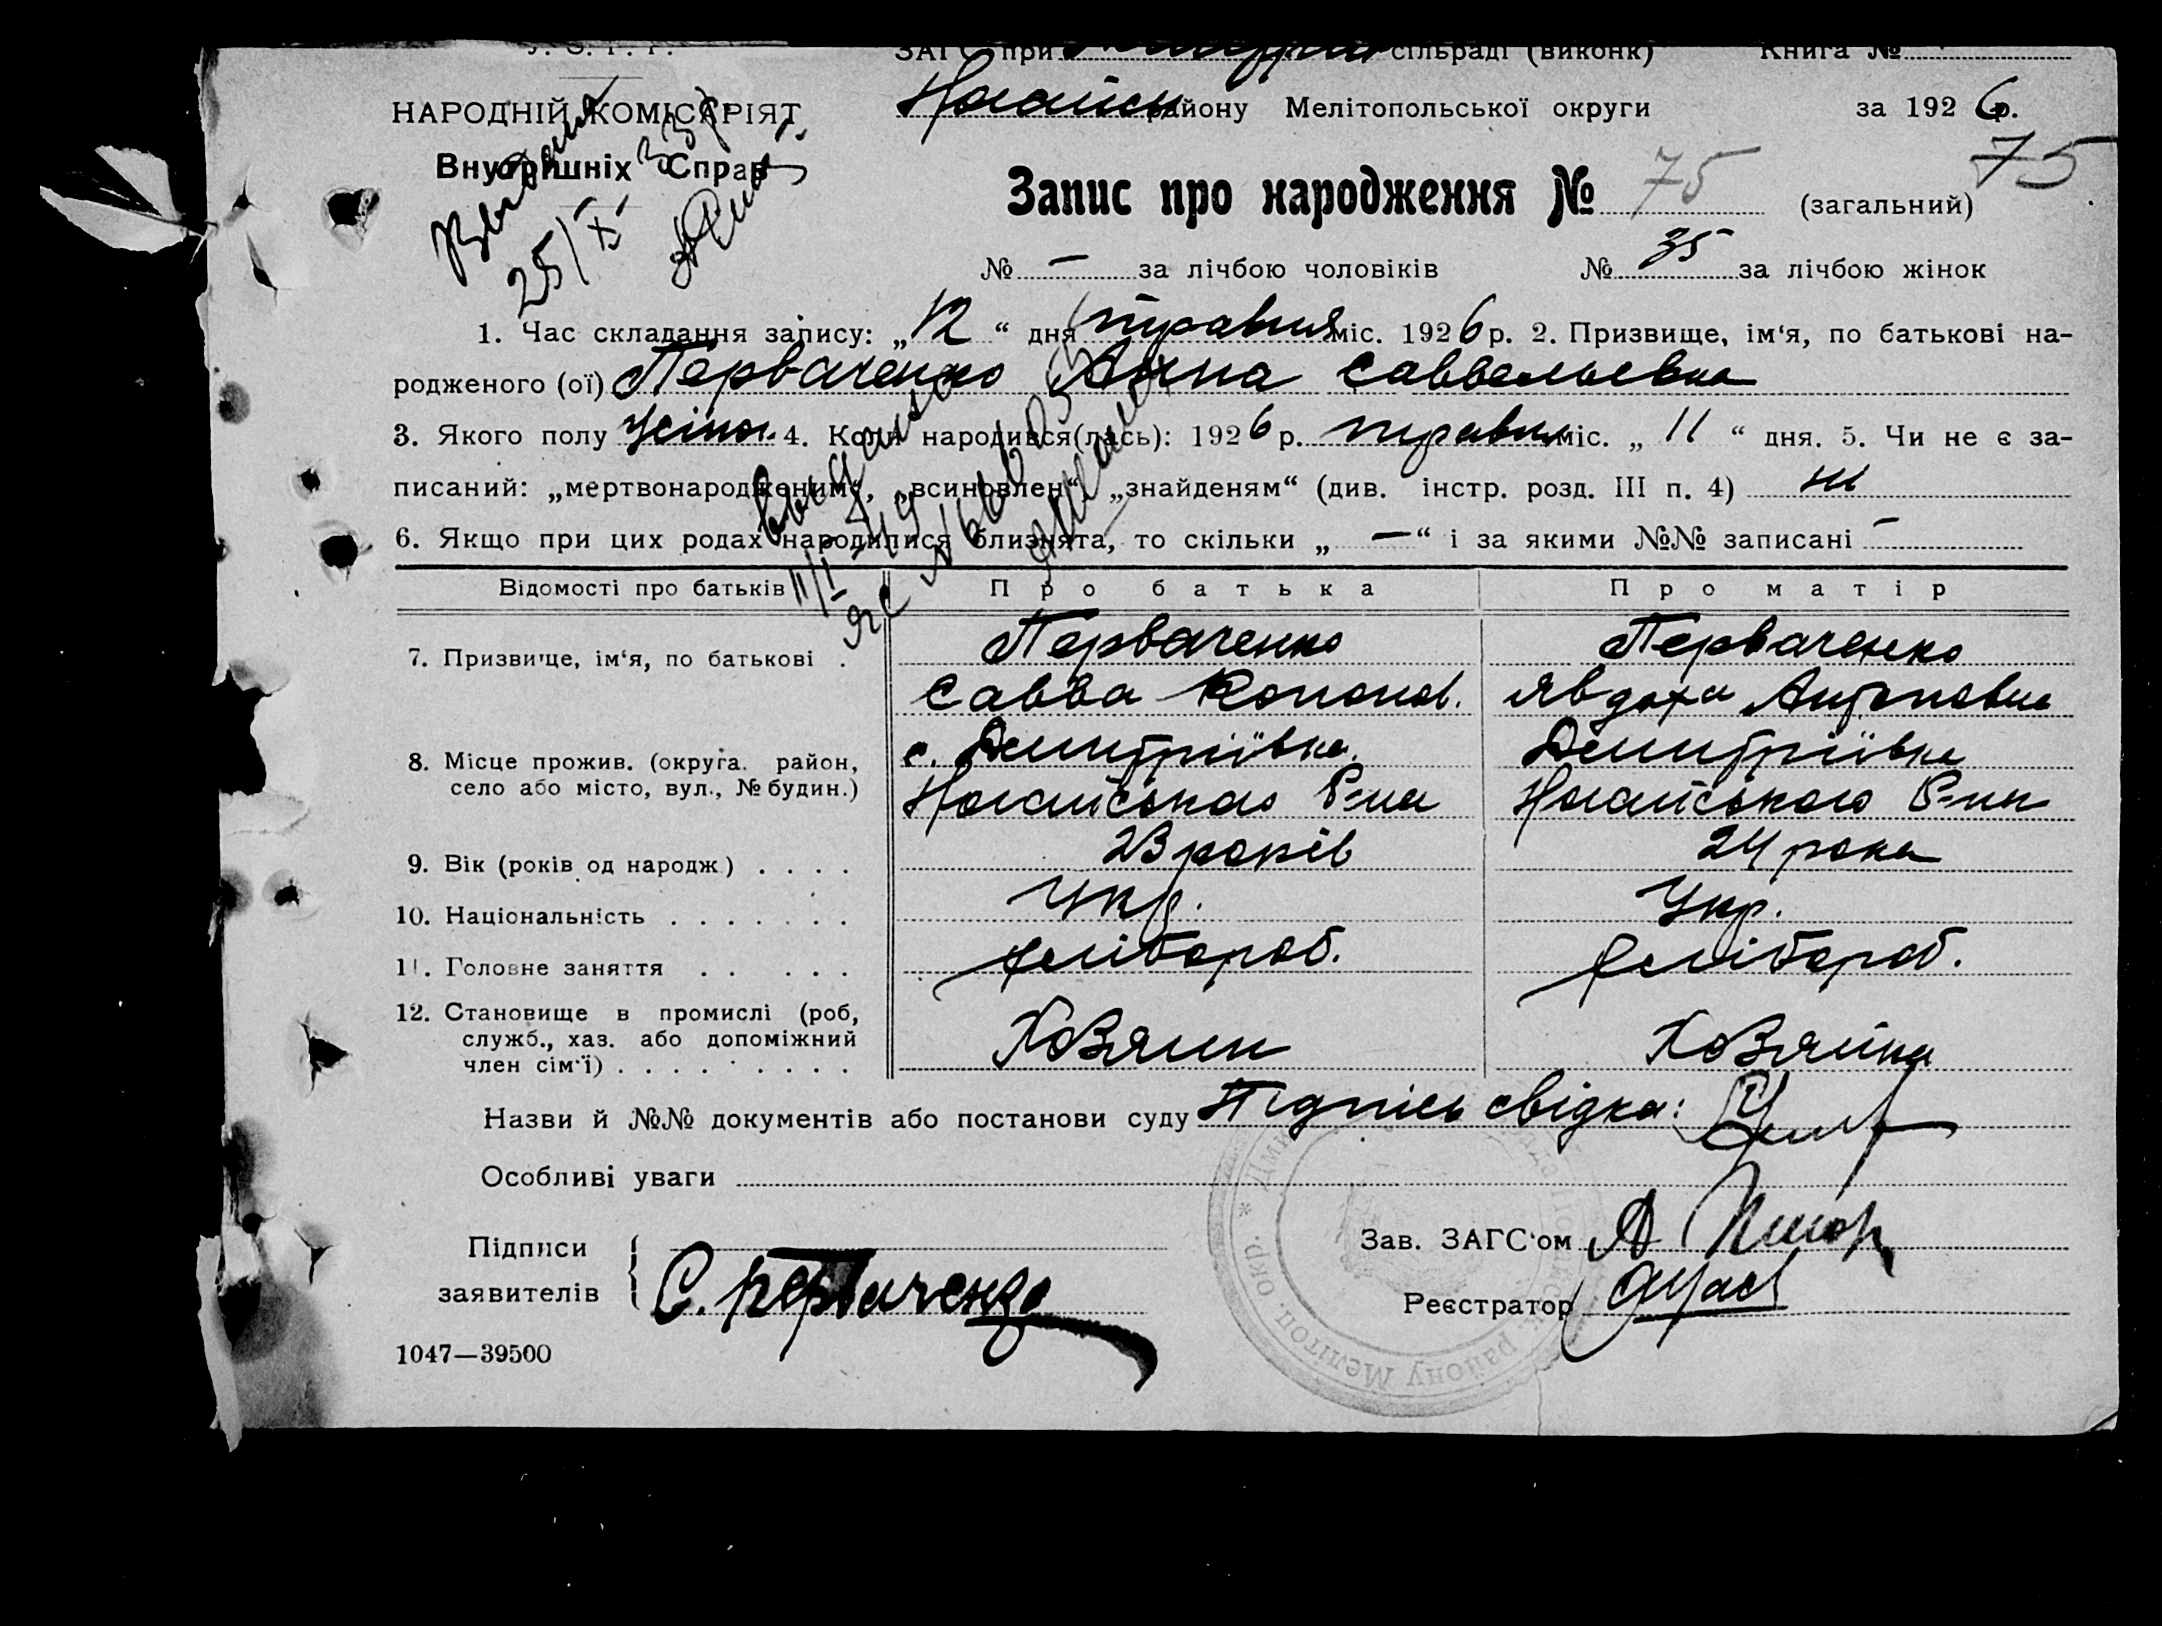 У. С. Р. Р. ЗАГС при сільраді (виконк) Книга №
НАРОДНІЙ КОМІСАРІЯТ Ногайськ району Мелітопольської округи за 1926 р.
Внутрішніх Справ
75
Запис про народження № 75 (загальний)
№ — за лічбою чоловіків № 35 за лічбою жінок
Выдана
25/X
1. Час складання запису: „12“ дня травня міс. 1926 р. 2. Призвище, ім‘я, по батькові на-
родженого (ої) Перваченко Анна Саввельевна
3. Якого полу жіноч. 4. Коли народився(лась): 1926 р. травня міс. „11“ дня. 5. Чи не є за-
писаний: „мертвонародженим“, „всиновлен“, „знайденям“ (див. інстр. розд. III п. 4) ні
6. Якщо при цих родах народилися близнята, то скільки „—“ і за якими №№ записані —
Выдано
Відомості про батьків Про батька Про матір
7. Призвище, ім‘я, по батькові . Перваченко Перваченко
Савва Кононов. Явдоха Антоновна
8. Місце прожив. (округа. район, с. Дмитріївка. Дмитріївка
село або місто, вул., № будин.) Ногайського Р-на Ногайського Р-на
9. Вік (років од народж) . . . . 23 років 24 рока
10. Національність . . . . . . . Укр. Укр.
11. Головне заняття . . . . . хлібороб. хлібороб.
12. Становище в промислі (роб,
служб., хаз. або допоміжний Хозяин Хозяйка
член сім‘ї) . . . . . . . . .
Назви й №№ документів або постанови суду Підпись свідка:
Особливі уваги
Підписи
заявителів С. Перваченко
Зав. ЗАГС‘ом
Реєстратор
району Мелітоп. окр. *
1047—39500